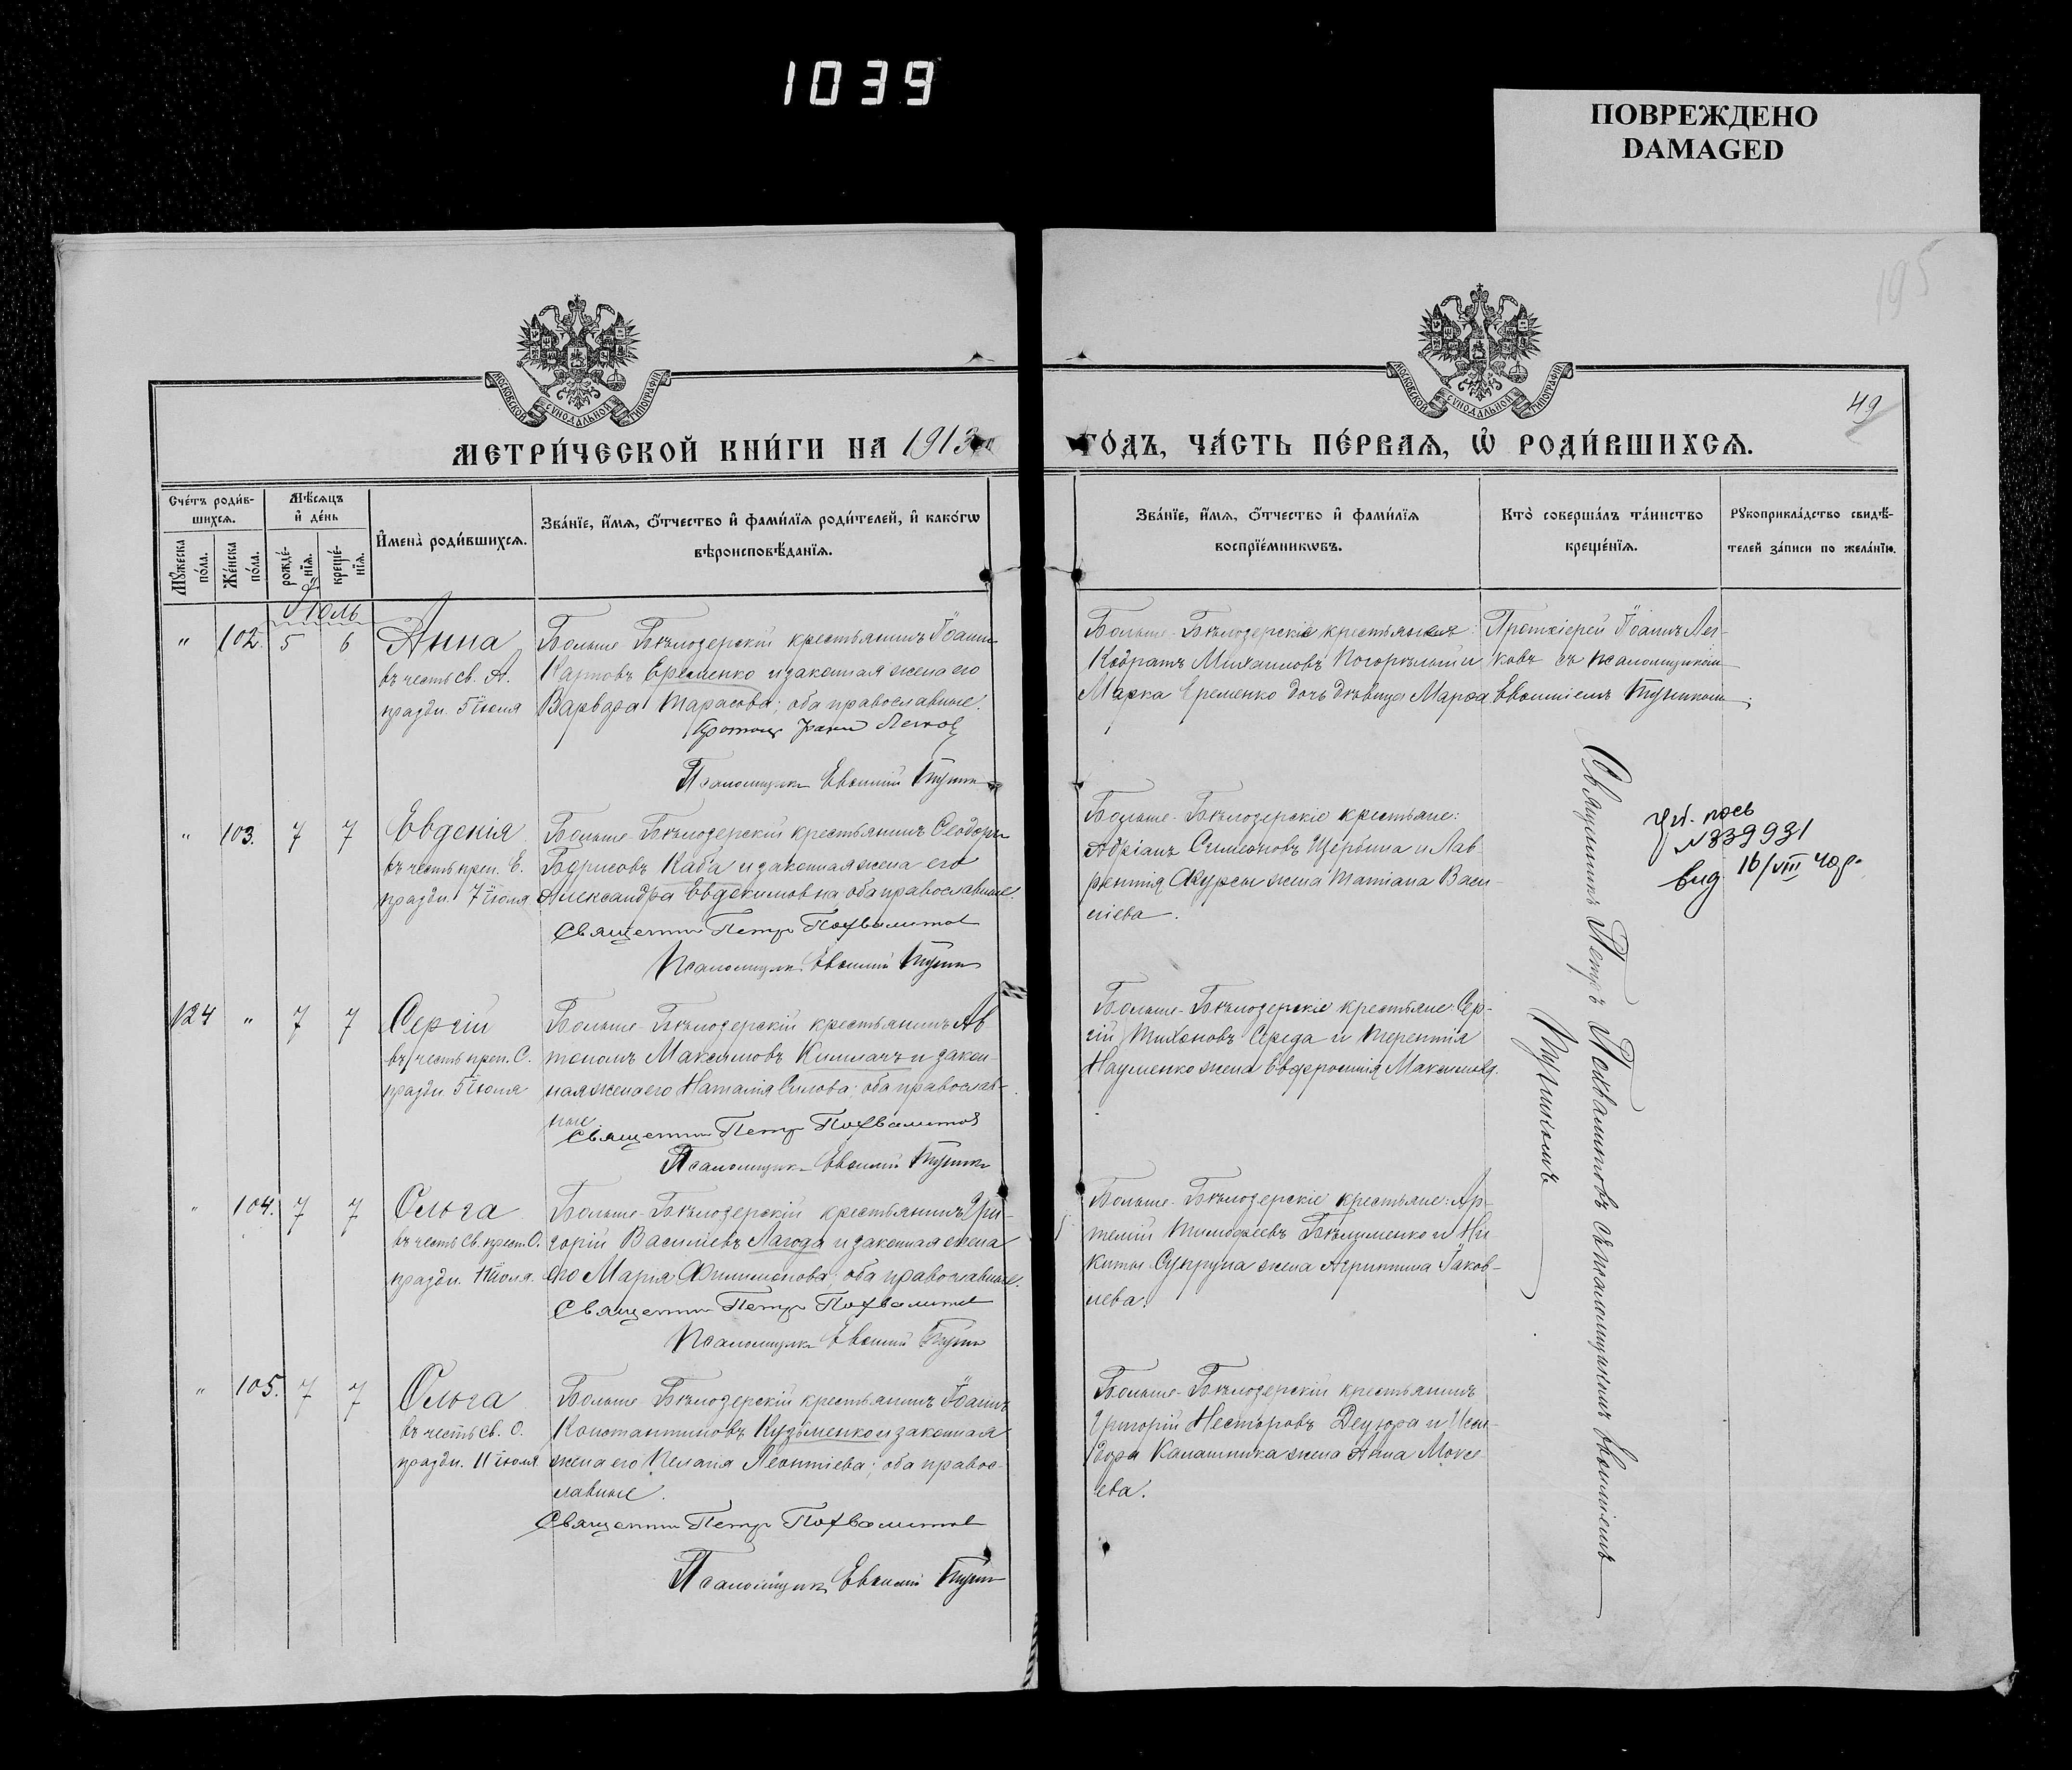 1039
ПОВРЕЖДЕНО
DAMAGED
195
49
МОСКОВСКОЙ СѴНОДАЛЬНОЙ ТИПОГРАФІИ
МОСКОВСКОЙ СѴНОДАЛЬНОЙ ТИПОГРАФІИ
МЕТРИ́ЧЕСКОЙ КНИ́ГИ НА 1913
ГО́ДЪ, ЧА́СТЬ ПЕ́РВАѦ, Ѡ҆ РОДИ́ВШИХСѦ.
Сче́тъ роди́в-
шихсѧ.
Мѣ́сѧцъ
и҆ де́нь
Мꙋ́жеска
по́ла.
Же́нска
по́ла.
рожде́-
нїѧ.
креще́-
нїѧ.
И҆мена̀ роди́вшихсѧ.
Зва́нїе, и҆́мѧ, ѻ҆́тчество и҆ фами́лїѧ роди́телей, и҆ како́гѡ
вѣроисповѣ́данїѧ.
Зва́нїе, и҆́мѧ, ѻ҆́тчество и҆ фами́лїѧ
воспрїе́мникѡвъ.
Кто̀ соверша́лъ та́инство
креще́нїѧ.
Рꙋкоприкла́дство свидѣ́-
телей за́писи по жела́нїю.
Іюль
" 102. 5 6 Анна
въ честь св. А.
праздн. 5 іюля
Больше Бѣлозерскій крестьянинъ Іоаннъ
Карповъ Еременко и законная жена его
Варвара Тарасова; оба православные.
Протоіер Іоаннъ Легков
Псаломщикъ Евѳимій
Больше-Бѣлозерскіе крестьяне:
Кодратъ Михаиловъ Погорѣлый и
Марка Еременко дочь дѣвица Марѳа
Протоіерей Іоаннъ Лег-
ковъ съ псаломщикомъ
Евѳиміемъ
" 103. 7 7 Евгенія
въ честь преп. Е.
праздн. 7 іюля
Больше-Бѣлозерскій крестьянинъ Ѳеодоръ
Борисовъ Каба и законная жена его
Александра Евдокимовна оба православные.
Священникъ Петр Похвалитов
Псаломщикъ Евѳимій
Больше-Бѣлозерскіе крестьяне:
Адріанъ Симеоновъ Щербина и Лав-
рентія жена Татіана Васи-
ліева.
№ 339931
вид 16/VIII 40 г.
124 " 7 7 Сергій
въ честь преп. С.
праздн. 5 іюля
Больше-Бѣлозерскій крестьянинъ Ав
тономъ Максимовъ и закон-
ная жена его Наталія Силова; оба православ-
ные.
Священникъ Петр Похвалитов
Псаломщикъ Евѳимій
Больше-Бѣлозерскіе крестьяне: Сер-
гій Тихоновъ Середа и Терентія
Науменко жена Евфросинія Максимова.
" 104. 7 7 Ольга
въ честь св. О.
праздн. 11 іюля.
Больше-Бѣлозерскій крестьянинъ Гри-
горій Василіевъ Лагода и законная жена
его Марія Филимонова; оба православные.
Священникъ Петр Похвалитов
Псаломщикъ Евѳимій
Больше-Бѣлозерскіе крестьяне: Ар-
темій Тимофеевъ и Ни-
киты Супруна жена Агриппина Іаков-
лева.
" 105. 7 7 Ольга
въ честь св. О.
праздн. 11 іюля
Больше Бѣлозерскій крестьянинъ Іоаннъ
Константиновъ Кузьменко и законная
жена его Пелагія Леонтіева; оба правос-
лавные.
Священникъ Петр Похвалитов
Псаломщикъ Евѳимій
Больше-Бѣлозерскій крестьянинъ
Григорій Несторовъ Деуюра и Иси-
дора Калашника жена Анна Моисе
ева.
Священникъ Петръ Похвалитовъ съ псаломщикомъ Евѳиміемъ